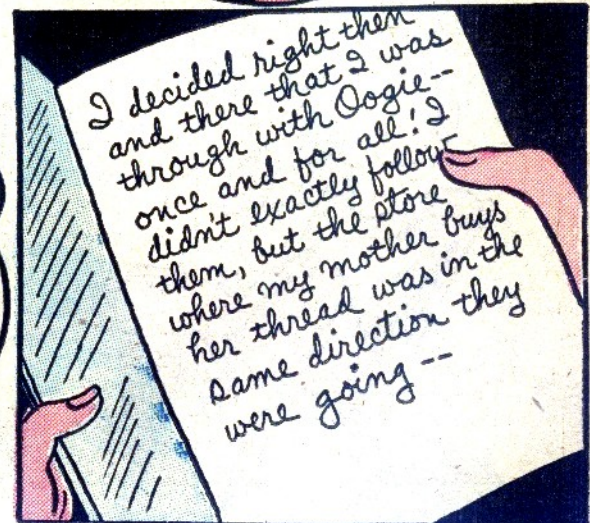 I decided right then
and there that I was
through with Oogie--
once and for all! I
didn't exactly follow
them, but the store
where my mother buys
her thread was in the
same direction they
were going --